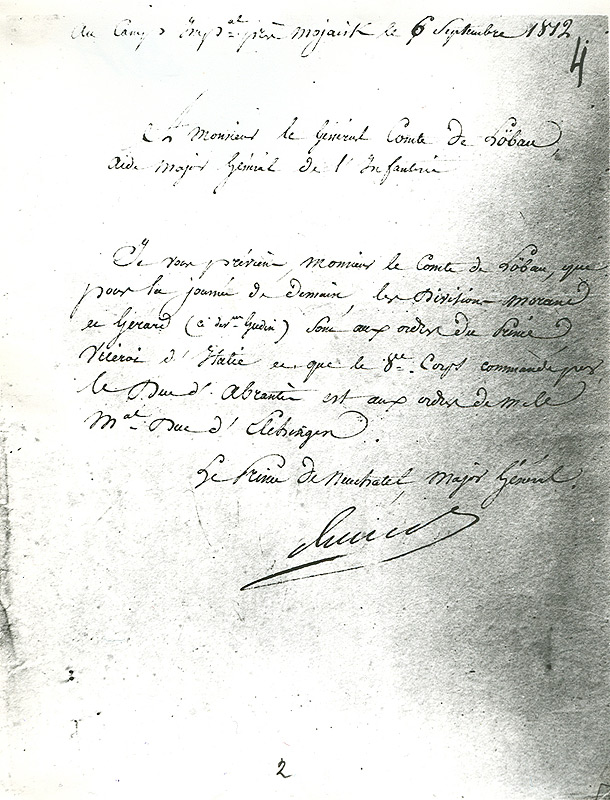 au Camp Imp.al près Mojaisk le 6 Septembre 1812
4
A Monsieur le Général Comte de Löbau,
Aide Major Général de l'Infanterie
Je vous préviens, Monsieur le Comte de Löbau, que
pour la journée de demain, les Divisions Morand
et Gerard (ci dev.nt Gudin) sont aux ordres du Prince
Viceroi d'Italie et que le 8.me Corps commandé par
le Duc d'Abrantès est aux ordres de M. le
M.al Duc d'Elchingen.
Le Prince de Neuchatel, Major Général.
2